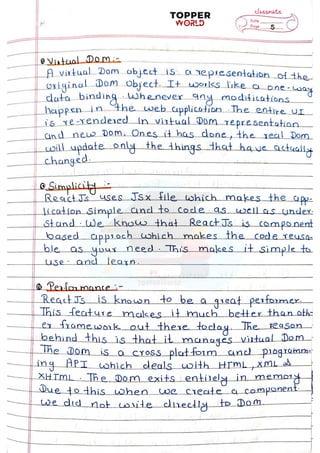 TOPPER
WORLD
classmate
Date
Page 5
Virtual Dom :-
A virtual Dom object is a representation of the
original Dom object. It works like a one-way
data binding. Whenever any modifications
happen in the web application. The entire UI
is re-rendered in virtual Dom representation
and new Dom. Ones it has done, the real Dom
will update only the things that have actually
changed.
Simplicity :-
ReactJs uses Jsx file which makes the app-
lication simple and to code as well as under-
stand. We know that ReactJs is component
based approch which makes the code reusa-
ble as your need. This makes it simple to
use and learn.
Performance :-
ReactJs is known to be a great performer.
This feature makes it much better than oth-
er framework out there today. The reason
behind this is that it manages virtual Dom
The Dom is a cross platform and programm-
ing API which deals with HTML, XML or
XHTML. The Dom exits entirely in memory
Due to this when we create a component
we did not write directly to Dom.